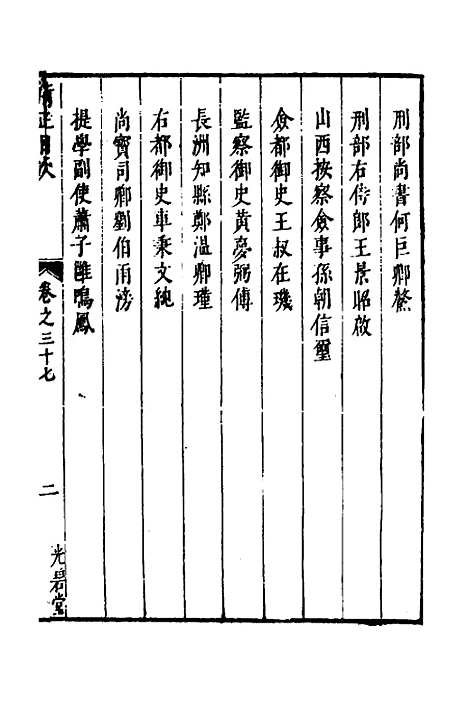 刑部尚書何巨卿鰲
刑部右侍郎王景昭啟
山西按察僉事孫朝信璽
僉都御史王叔在璣
監察御史黃夢弼傅
長洲知縣鄭溫卿瑾
右都御史車秉文純
尚寶司卿劉伯雨滂
提學副使蕭子雝鳴鳳
卷之三十七
二
光碧堂